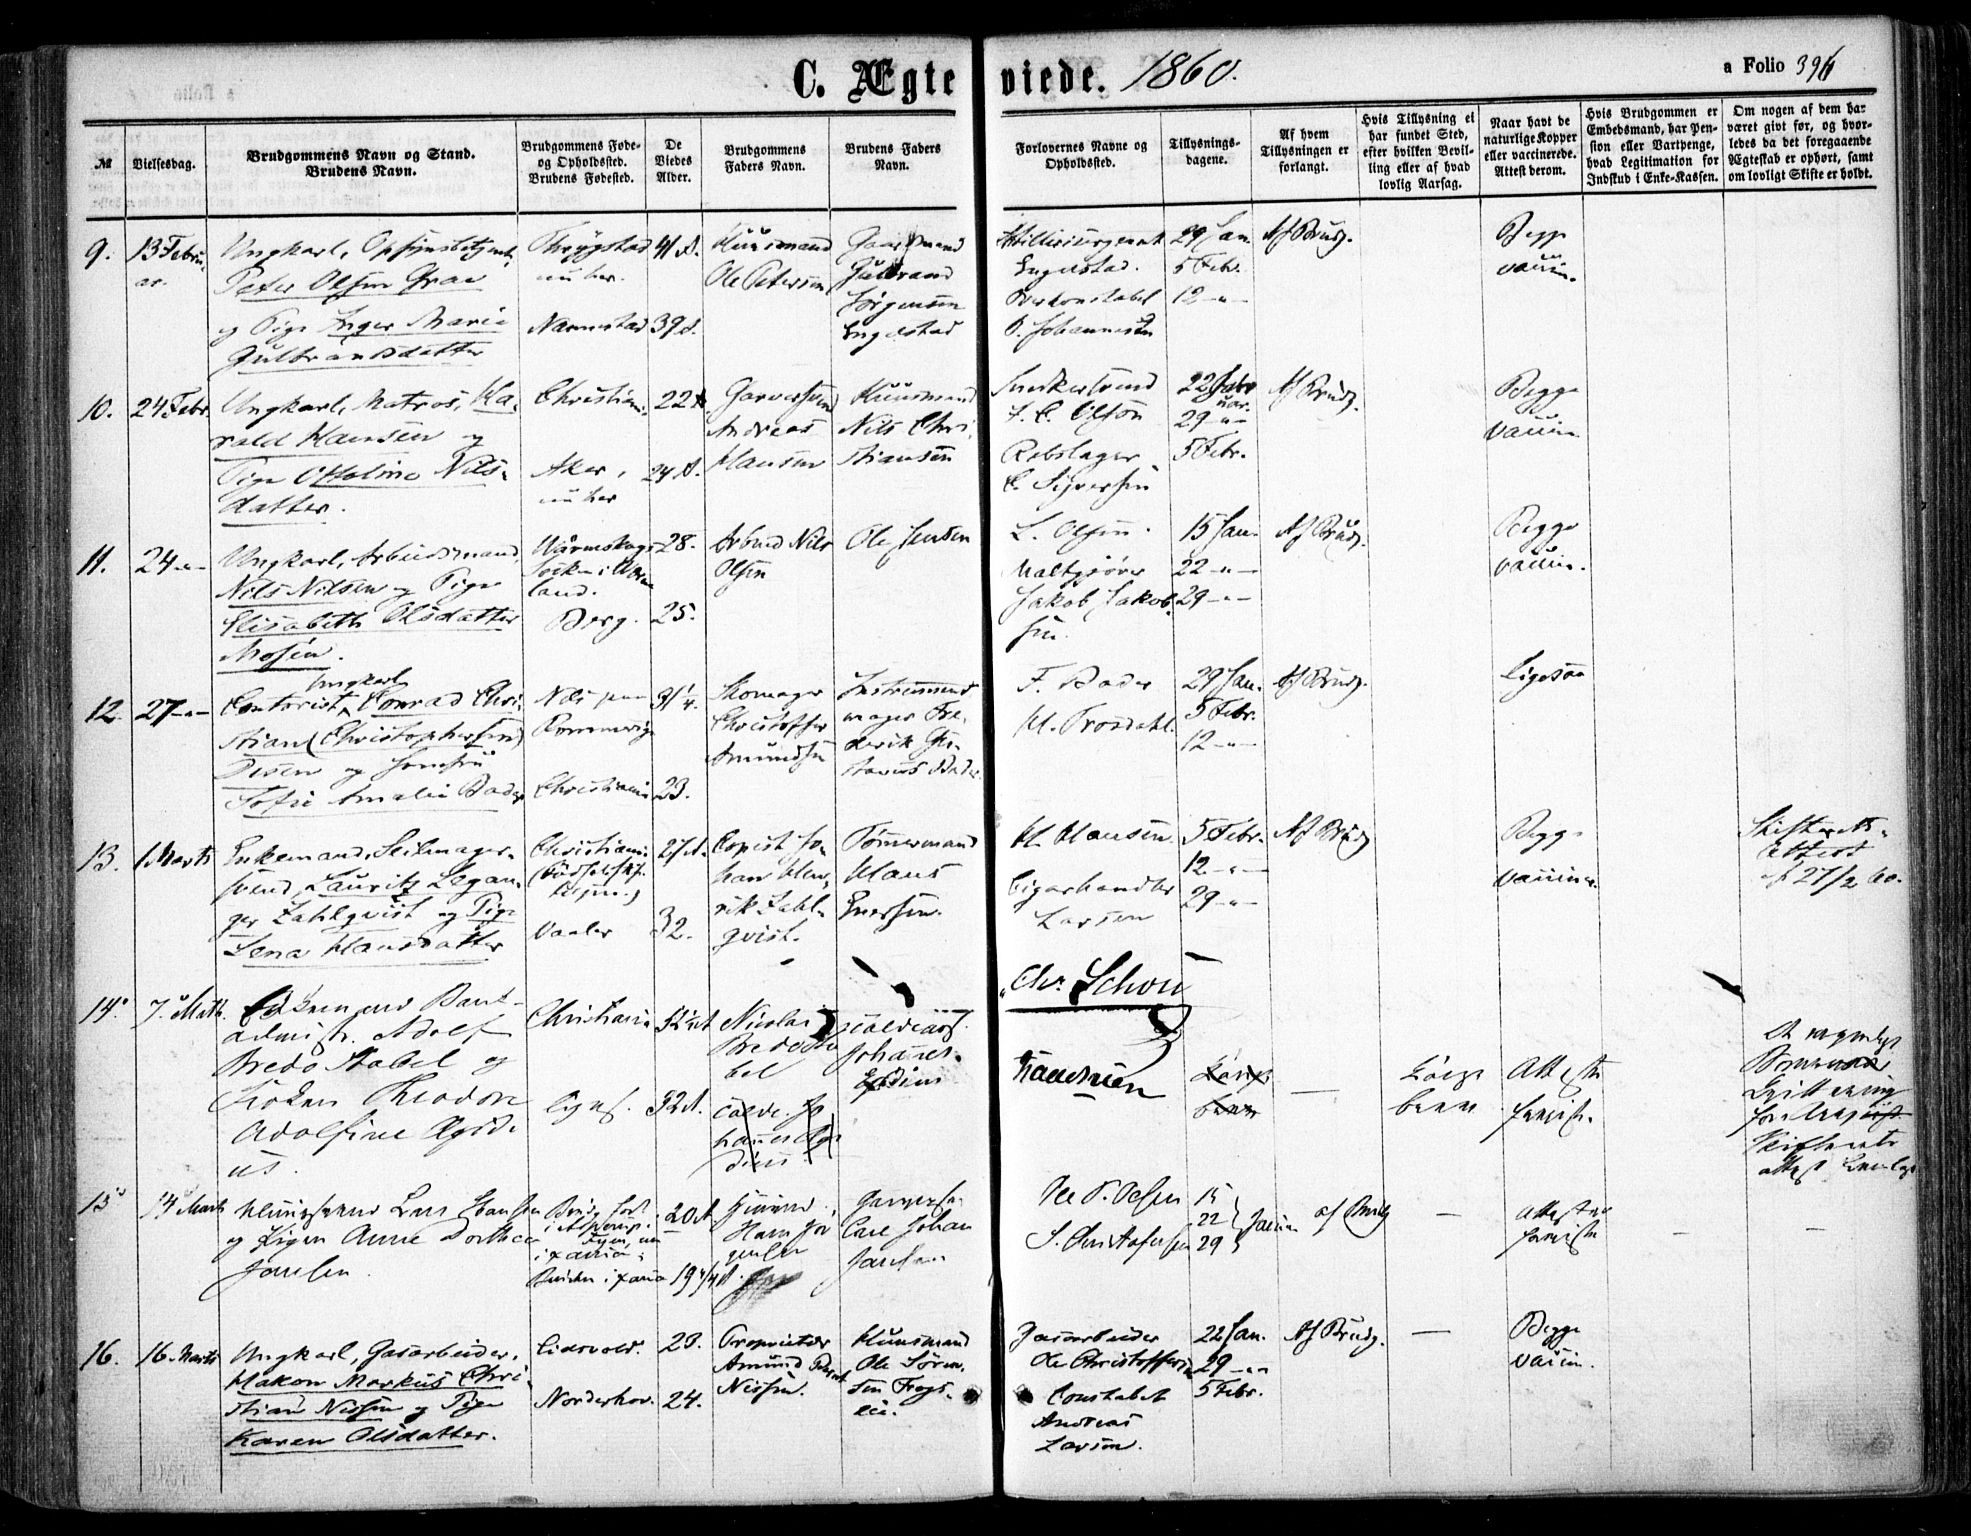 C. Ægteviede. 1860.
a Folio 396
№
Vielsesdag.
Brudgommens Navn og Stand.
Brudens Navn.
Brudgommens Føde-
og Opholdssted.
Brudens Fødested.
De
Viedes
Alder.
Brudgommens
Faders Navn.
Brudens Faders
Navn.
Forlovernes Navne og
Opholdssted.
Tillysnings-
dagene.
Af hvem
Tillysningen er
forlangt.
Hvis Tillysning ei
har fundet Sted,
efter hvilken Bevil-
ling eller af hvad
lovlig Aarsag.
Naar havt de
naturlige Kopper
eller vaccinerede.
Attest derom.
Hvis Brudgommen er
Embedsmand, har Pen-
sion eller Vartpenge,
hvad Legitimation for
Indskud i Enke-Kassen.
Om nogen af dem ha-
været givt før, og hvor-
ledes da det foregaaende
Ægteskab er ophørt, samt
om lovligt Skifte er holdt.
9.
13 Febru-
ar.
Ungkarl, Opsynsbetjent,
Peter Olsen Grav
og Pige Inger Marie
Gulbrandsdatter
Thrygstad
nu her.
Nannestad
41 A.
39 A.
Huusmand
Ole Petersen
Gaardmand
Gulbrand
Jörgensen
Engelstad
Engelstad.
Overkonstabel
P. Johannesen
29 Jan.
5 Febr.
12 -"-
Af Brudg.
Begge
vaccin.
10.
24 Febr
Ungkarl, Matros, Ha-
rald Hansen og
Pige Ottoline Nils-
datter.
Christiania
Aker,
nu her
22 A.
24 A.
Garversvend
Andreas
Hansen
Huusmand
Nils Chri-
stiansen
Snedkersvend
F. C. Olson
Rebslager
C. Syversen
22 Janu
uar.
29 -"-
5 Febr.
Af Brudg.
Begge
vaccin.
11.
24 -"-
Ungkarl, Arbeidsmand
Nils Nilsen og Pige
Elisabeth Olsdatter
Mosen.
Wärmskogs
Socken i Werm
land.
Berg.
28.
25.
Arbmd Nils
Olsen
Ole Jensen
L. Olsen.
Maltgjører
Jakob Jakob-
sen.
15 Jan.
22 -"-
29 -"-
Af Brudg.
Begge
vaccin.
12.
27 -"-
Ungkarl
Contorist Conrad Chri-
stian (Christophersen)
Disen og Jomfru
Sofie Amalie Bader
Næs paa
Rommerige
Christiania
31 1/4.
23.
Skomager
Christoffer
Amundsen
Instrument
mager Fre-
derik Gu-
stavus Bader.
F. Bader
H. Trosdahl.
29 Jan.
5 Febr.
12 -"-
Af Brudg.
Ligesaa
13.
1 Marts
Enkemand, Seilmager-
svend Lauritz Legan-
ger Zahlqvist og Pige
Lena Hansdatter
Christiania
Vaaler
27 A.
32.
Copist Jo-
han Hen-
rik Zahl-
qvist.
Tömmermand
Hans
Enersen.
H. Hansen
Cigarhandler
Larsen
5 Febr.
12 -"-
29 -"-
Af Brudg
Begge
vaccin.
Skifterets-
attest
af 27/2 60.
14.
7. Marts.
Enkemand Bank-
administr. Adolf
Bredo Stabel og
Frøken Theodora
Adolfine Ægidi
us.
Christiania
52 A
32 A.
Nicolai
Bredo Sta
bel
Johannes
Ægidius
Chr. Schou
Konge
brev
Konge
brev
Atteste
foreviste.
15
14 Marts
Lars Hansen
og Pigen Anne Dorthea
Janssen
i Xania
Bruden i Xania
20 A
19 3/4 A.
Hans Jør
gensen
Carl Johan
Janssen
Ole P. Olsen
S. Christofersen
15
22
29
Januar
af Brudg
—
Attester
foreviste
16.
16 Marts
Ungkarl, Gasarbeider,
Hakon Markus Chri-
stian Nissen og Pige
Karen Olsdatter.
Eidsvold.
Norderhov.
28.
24.
Proprietær
Amund
Nissen.
Huusmand
Ole Sören-
sen Frogs-
eie.
Gasarbeider
Ole Christoffersen
Constabel
Andreas
Larsen.
22 Jan.
29 -"-
5 Febr.
Af Brudg.
—
Begge
vaccin.